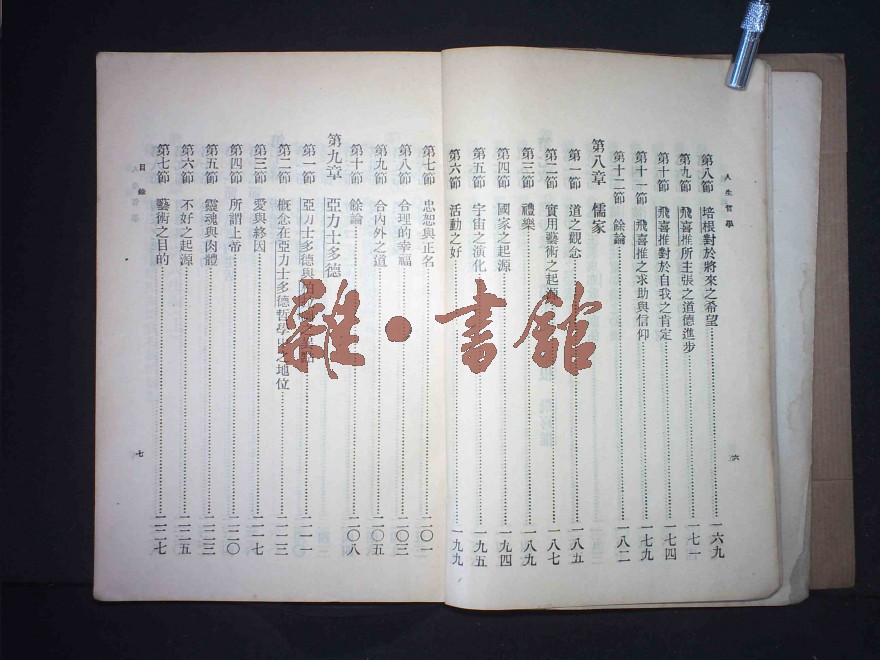 人生哲學
第八節 培根對於將來之希望 一六九
第九節 飛喜推所主張之道德進步 一七一
第十節 飛喜推對於自我之肯定 一七四
第十一節 飛喜推之求助與信仰 一七九
第十二節 餘論 一八二
第八章 儒家
第一節 道之觀念 一八五
第二節 實用藝術之起源 一八七
第三節 禮樂 一八九
第四節 國家之起源 一九四
第五節 宇宙之演化 一九五
第六節 活動之好 一九九
六
第七節 忠恕與正名 二〇一
第八節 合理的幸福 二〇三
第九節 合內外之道 二〇五
第十節 餘論 二〇八
第九章 亞力士多德
第一節 亞力士多德與 二一一
第二節 概念在亞力士多德哲學 之地位 二一三
第三節 愛與終因 二一七
第四節 所謂上帝 二二〇
第五節 靈魂與肉體 二二三
第六節 不好之起源 二二五
第七節 藝術之目的 二二七
目錄
七
雜·書館